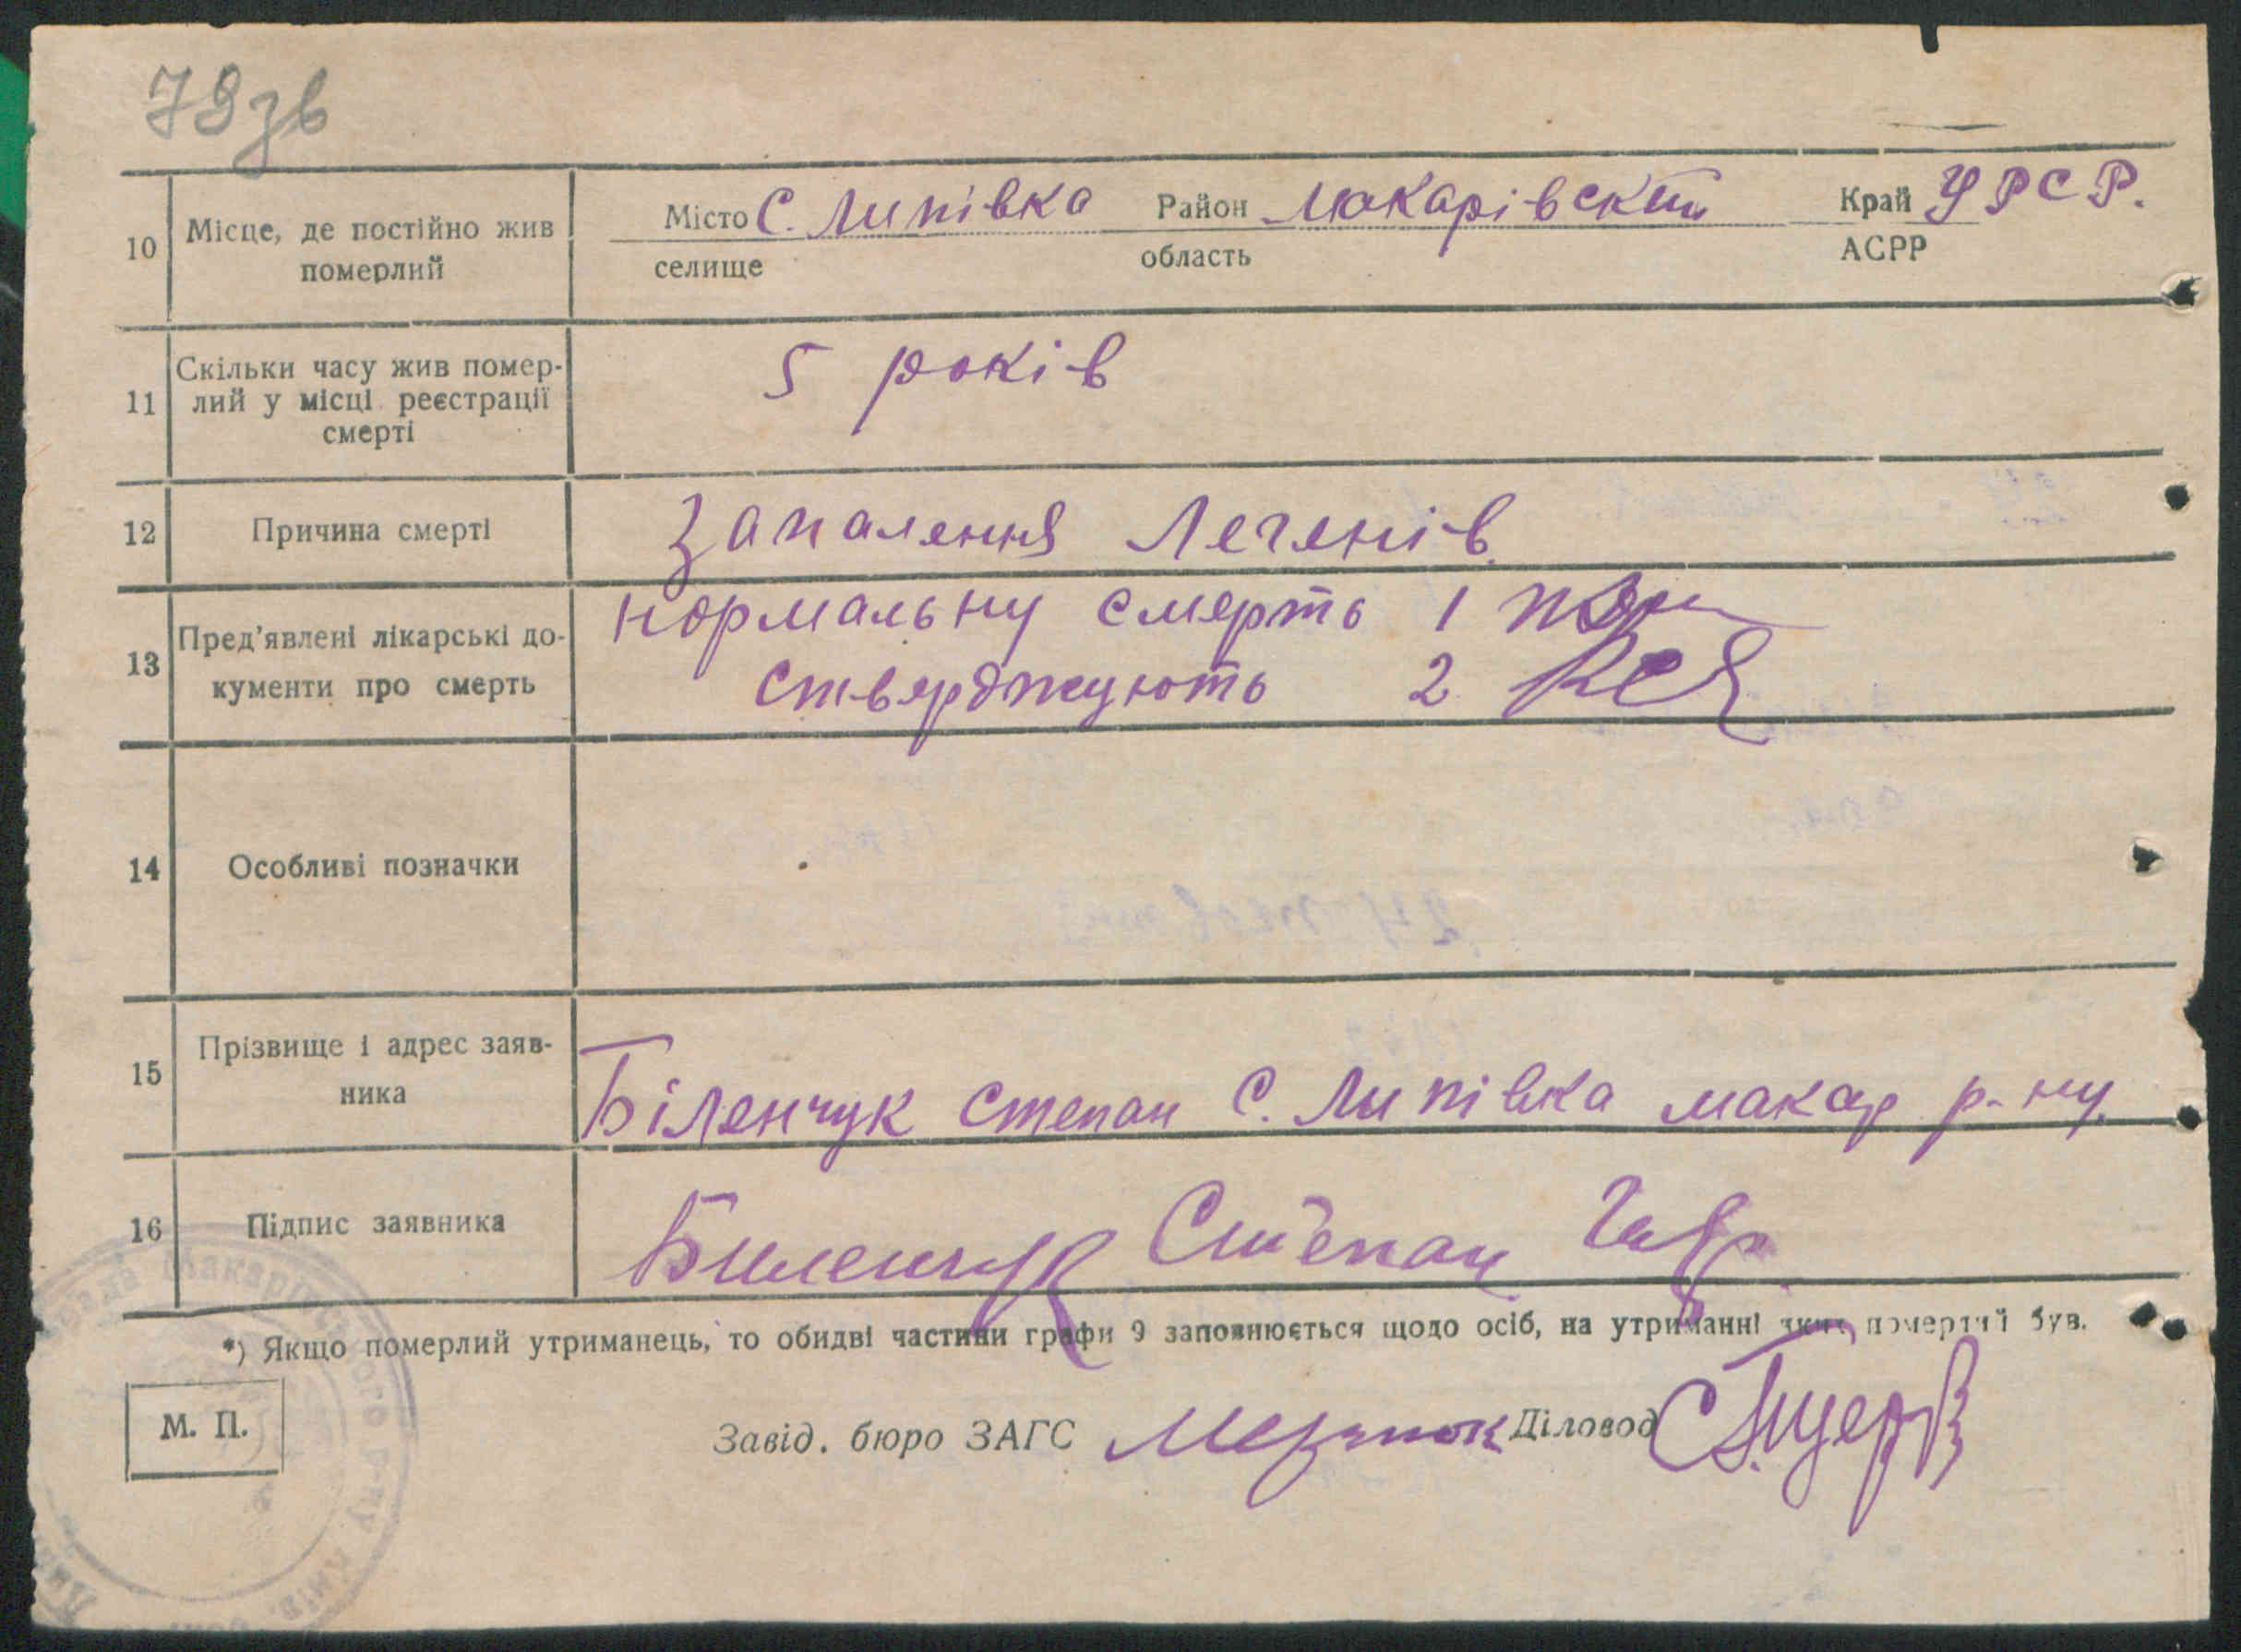 78зв
10 Місце, де постійно жив померлий
Місто С. Липівка Район Макарівский Край УРСР.
селище область АСРР
11 Скільки часу жив помер-
лий у місці реєстрації
смерті
5 років
12 Причина смерті
Запалення Легенів
13 Пред'явлені лікарські до-
кументи про смерть
нормальну смерть 1
стверджують 2
14 Особливі позначки
15 Прізвище і адрес заяв-
ника
Біленчук Степан С. Липівка макар р-ну.
16 Підпис заявника
Биленчук Степан
*) Якщо померлий утриманець, то обидві частини графи 9 заповнюється щодо осіб, на утриманні яких померлий був.
М. П.
Завід. бюро ЗАГС Діловод